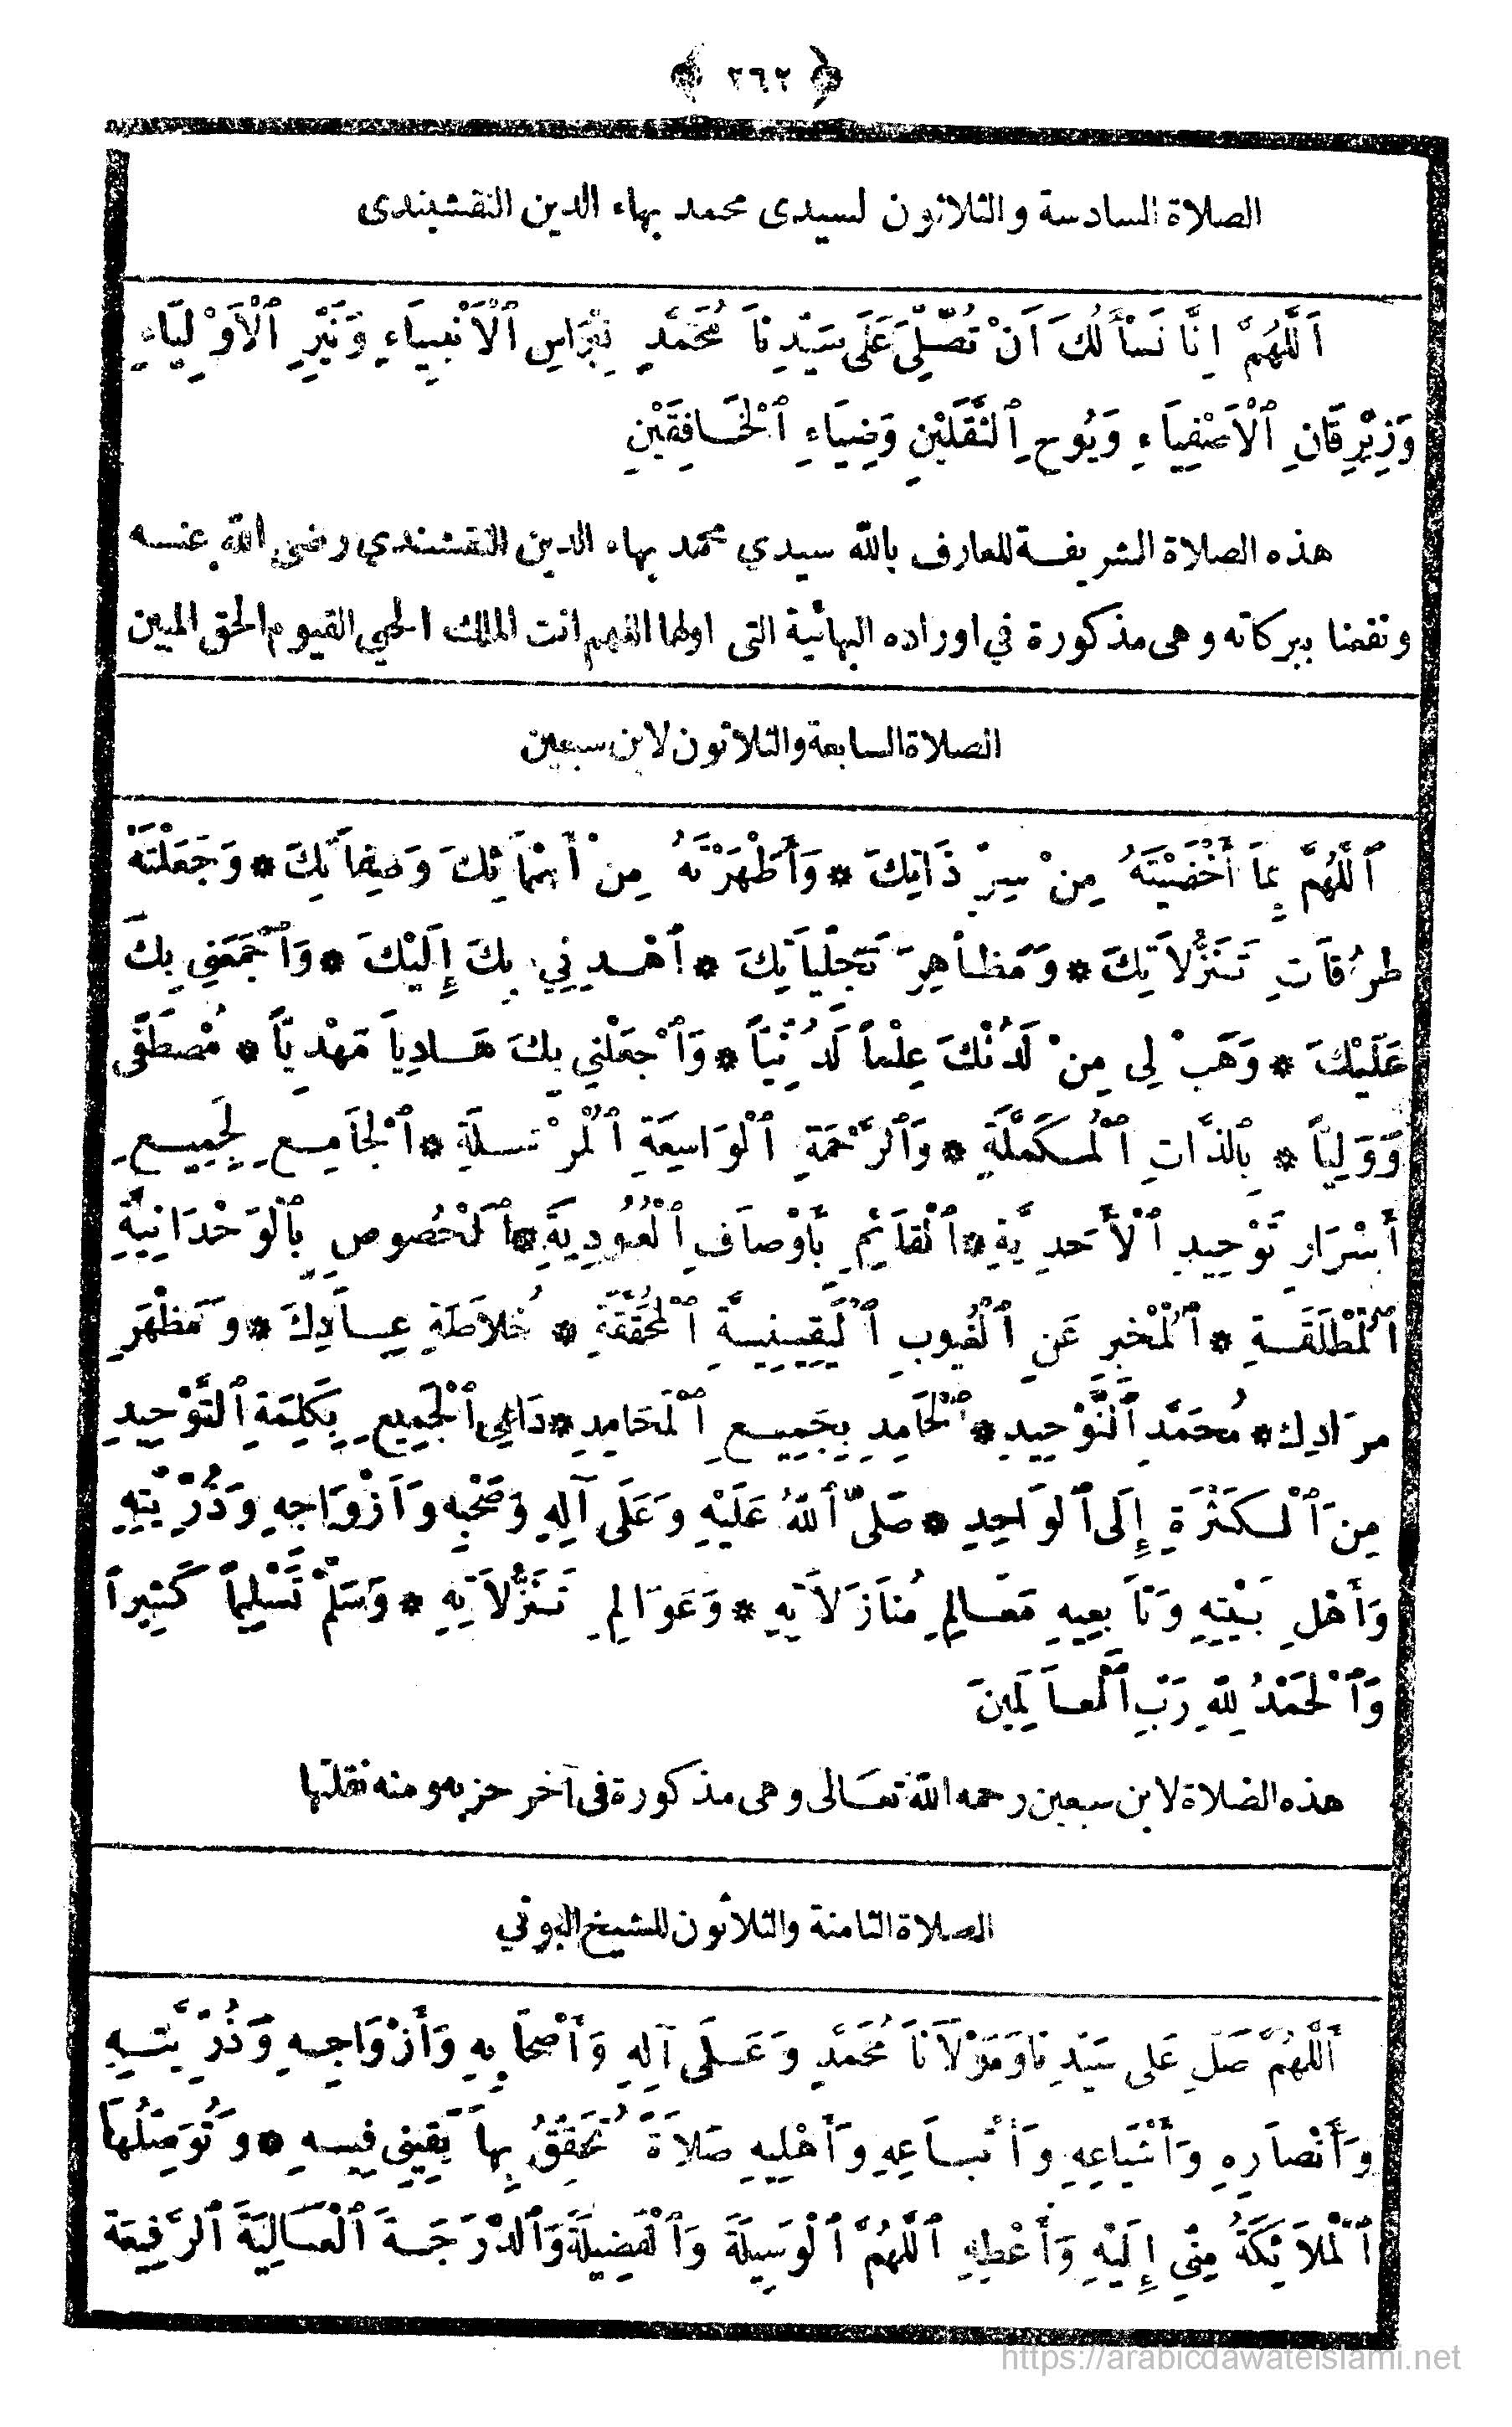 ﴿ ٢٦٢ ﴾
الصلاة السادسة والثلاثون لسيدى محمد بهاء الدين النقشبندى
اَللّٰهُمَّ اِنَّا نَسْأَلُكَ اَنْ تُصَلِّىَ عَلَى سَيِّدِنَا مُحَمَّدٍ نِبْرَاسِ ٱلْأَنْبِيَاءِ وَنَيِّرِ ٱلْأَوْلِيَاءِ
وَزِبْرِقَانِ ٱلْأَصْفِيَاءِ وَيُوحِ ٱلثَّقَلَيْنِ وَضِيَاءِ ٱلْخَافِقَيْنِ
هذه الصلاة الشريفة للعارف بالله سيدي محمد بهاء الدين النقشبندي رضى الله عنه
ونفعنا ببركاته وهى مذكورة في اوراده البهائية التى اولها اللهم انت الملك الحي القيوم الحق المبين
الصلاة السابعة والثلاثون لابن سبعين
ٱللّٰهُمَّ بِمَا أَخْفَيْتَهُ مِنْ سِرِّ ذَاتِكَ * وَأَظْهَرْتَهُ مِنْ أَسْمَائِكَ وَصِفَاتِكَ * وَجَعَلْتَهُ
طُرُقَاتِ تَنَزُّلاَتِكَ * وَمَظَاهِرَ تَجَلِّيَاتِكَ * ٱهْدِنِي بِكَ إِلَيْكَ * وَٱجْمَعْنِي بِكَ
عَلَيْكَ * وَهَبْ لِى مِنْ لَدُنْكَ عِلْماً لَدُنِّيّاً * وَٱجْعَلْنِي بِكَ هَادِياً مَهْدِيّاً * مُصْطَفًى
وَوَلِيّاً * بِٱلذَّاتِ ٱلْمُكَمَّلَةِ * وَٱلرَّحْمَةِ ٱلْوَاسِعَةِ ٱلْمُرْسَلَةِ * ٱلْجَامِعِ لِجَمِيعِ
أَسْرَارِ تَوْحِيدِ ٱلْأَحَدِيَّةِ * ٱلْقَائِمِ بِأَوْصَافِ ٱلْعُبُودِيَّةِ * ٱلْمَخْصُوصِ بِٱلْوَحْدَانِيَّةِ
ٱلْمُطْلَقَةِ * ٱلْمُخْبِرِ عَنِ ٱلْغُيُوبِ ٱلْيَقِينِيَّةِ ٱلْمُحَقَّقَةِ * خُلاَصَةِ عِبَادِكَ * وَمَظْهَرِ
مُرَادِكَ * مُحَمَّدِ ٱلتَّوْحِيدِ * ٱلْحَامِدِ بِجَمِيعِ ٱلْمَحَامِدِ * دَاعِى ٱلْجَمِيعِ بِكَلِمَةِ ٱلتَّوْحِيدِ
مِنَ ٱلْكَثْرَةِ إِلَى ٱلْوَاحِدِ * صَلَّى ٱللّٰهُ عَلَيْهِ وَعَلَى آلِهِ وَصَحْبِهِ وَأَزْوَاجِهِ وَذُرِّيَّتِهِ
وَأَهْلِ بَيْتِهِ وَتَابِعِيهِ مَعَالِمِ مُنَازَلاَتِهِ * وَعَوَالِمِ تَنَزُّلاَتِهِ * وَسَلَّمْ تَسْلِيماً كَثِيراً
وَٱلْحَمْدُ لِلّٰهِ رَبِّ ٱلْعَالَمِينَ
هذه الصلاة لابن سبعين رحمه الله تعالى وهى مذكورة فى آخر حزبه ومنه نقلتها
الصلاة الثامنة والثلاثون للشيخ البوني
أَللّٰهُمَّ صَلِّ عَلَى سَيِّدِنَا وَمَوْلَانَا مُحَمَّدٍ وَعَلَى آلِهِ وَأَصْحَابِهِ وَأَزْوَاجِهِ وَذُرِّيَّتِهِ
وَأَنْصَارِهِ وَأَشْيَاعِهِ وَأَتْبَاعِهِ وَأَهْلِيهِ صَلاَةً تُحَقِّقُ بِهَا يَقِينِى فِيهِ * وَتُوَصِّلُهَا
ٱلْمَلاَئِكَةُ مِنِّي إِلَيْهِ وَأَعْطِهِ ٱللّٰهُمَّ ٱلْوَسِيلَةَ وَٱلْفَضِيلَةَ وَٱلدَّرَجَةَ ٱلْعَالِيَةَ ٱلرَّفِيعَةَ
https://arabicdawateislami.net